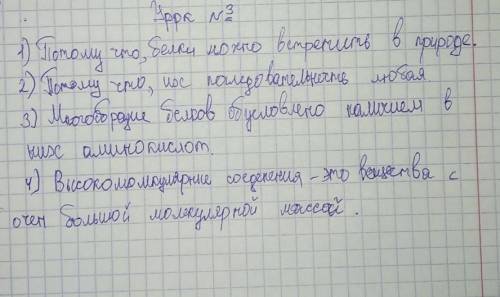 Урок №3
1) Потому что, белки можно встретить в природе.
2) Потому что, их последовательность любая
3) Многобразие белков обусловлено наличием в
них аминокислот.
4) Высокомолкулярние соеденения - это вещества с
очен большой молекулярной массой.